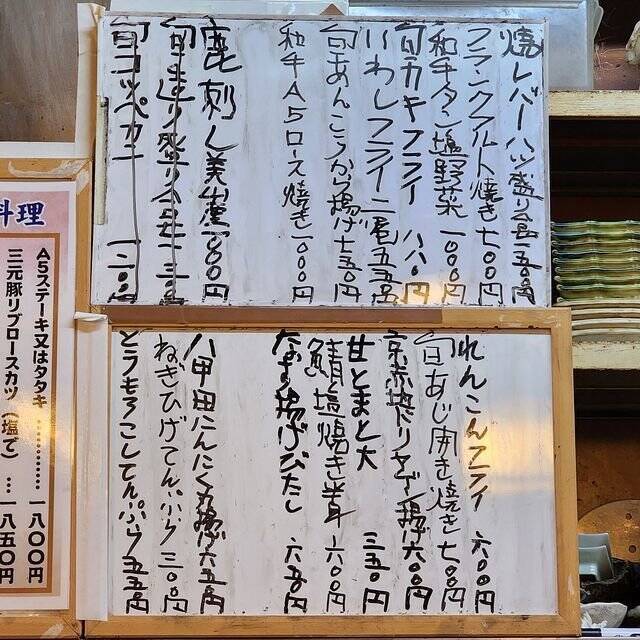 焼レバーハツ盛り合せ一五〇〇円
フランクフルト焼き七〇〇円
和牛タン塩野菜一〇〇〇円
旬カキフライ 八八〇円
いわしフライ二尾五五〇円
旬あんこうから揚げ七五〇円
和牛A5ロース焼き一〇〇〇円
鹿刺し美山産一〇〇〇円
旬コッペカニ 一二〇〇円
れんこんフライ 六〇〇円
旬あじ開き焼き七〇〇円
京赤地ドリヤゲン揚げ六〇〇円
甘とまと大 三五〇円
鯖塩焼き半身 六〇〇円
なす揚げびたし 六五〇円
八甲田にんにく丸揚げ六五〇円
ねぎひげてんぷら 三〇〇円
とうもろこしてんぷら五五〇円
料理
A5ステーキ又はタタキ …………一八〇〇円
三元豚リブロースカツ（塩で）…一八五〇円